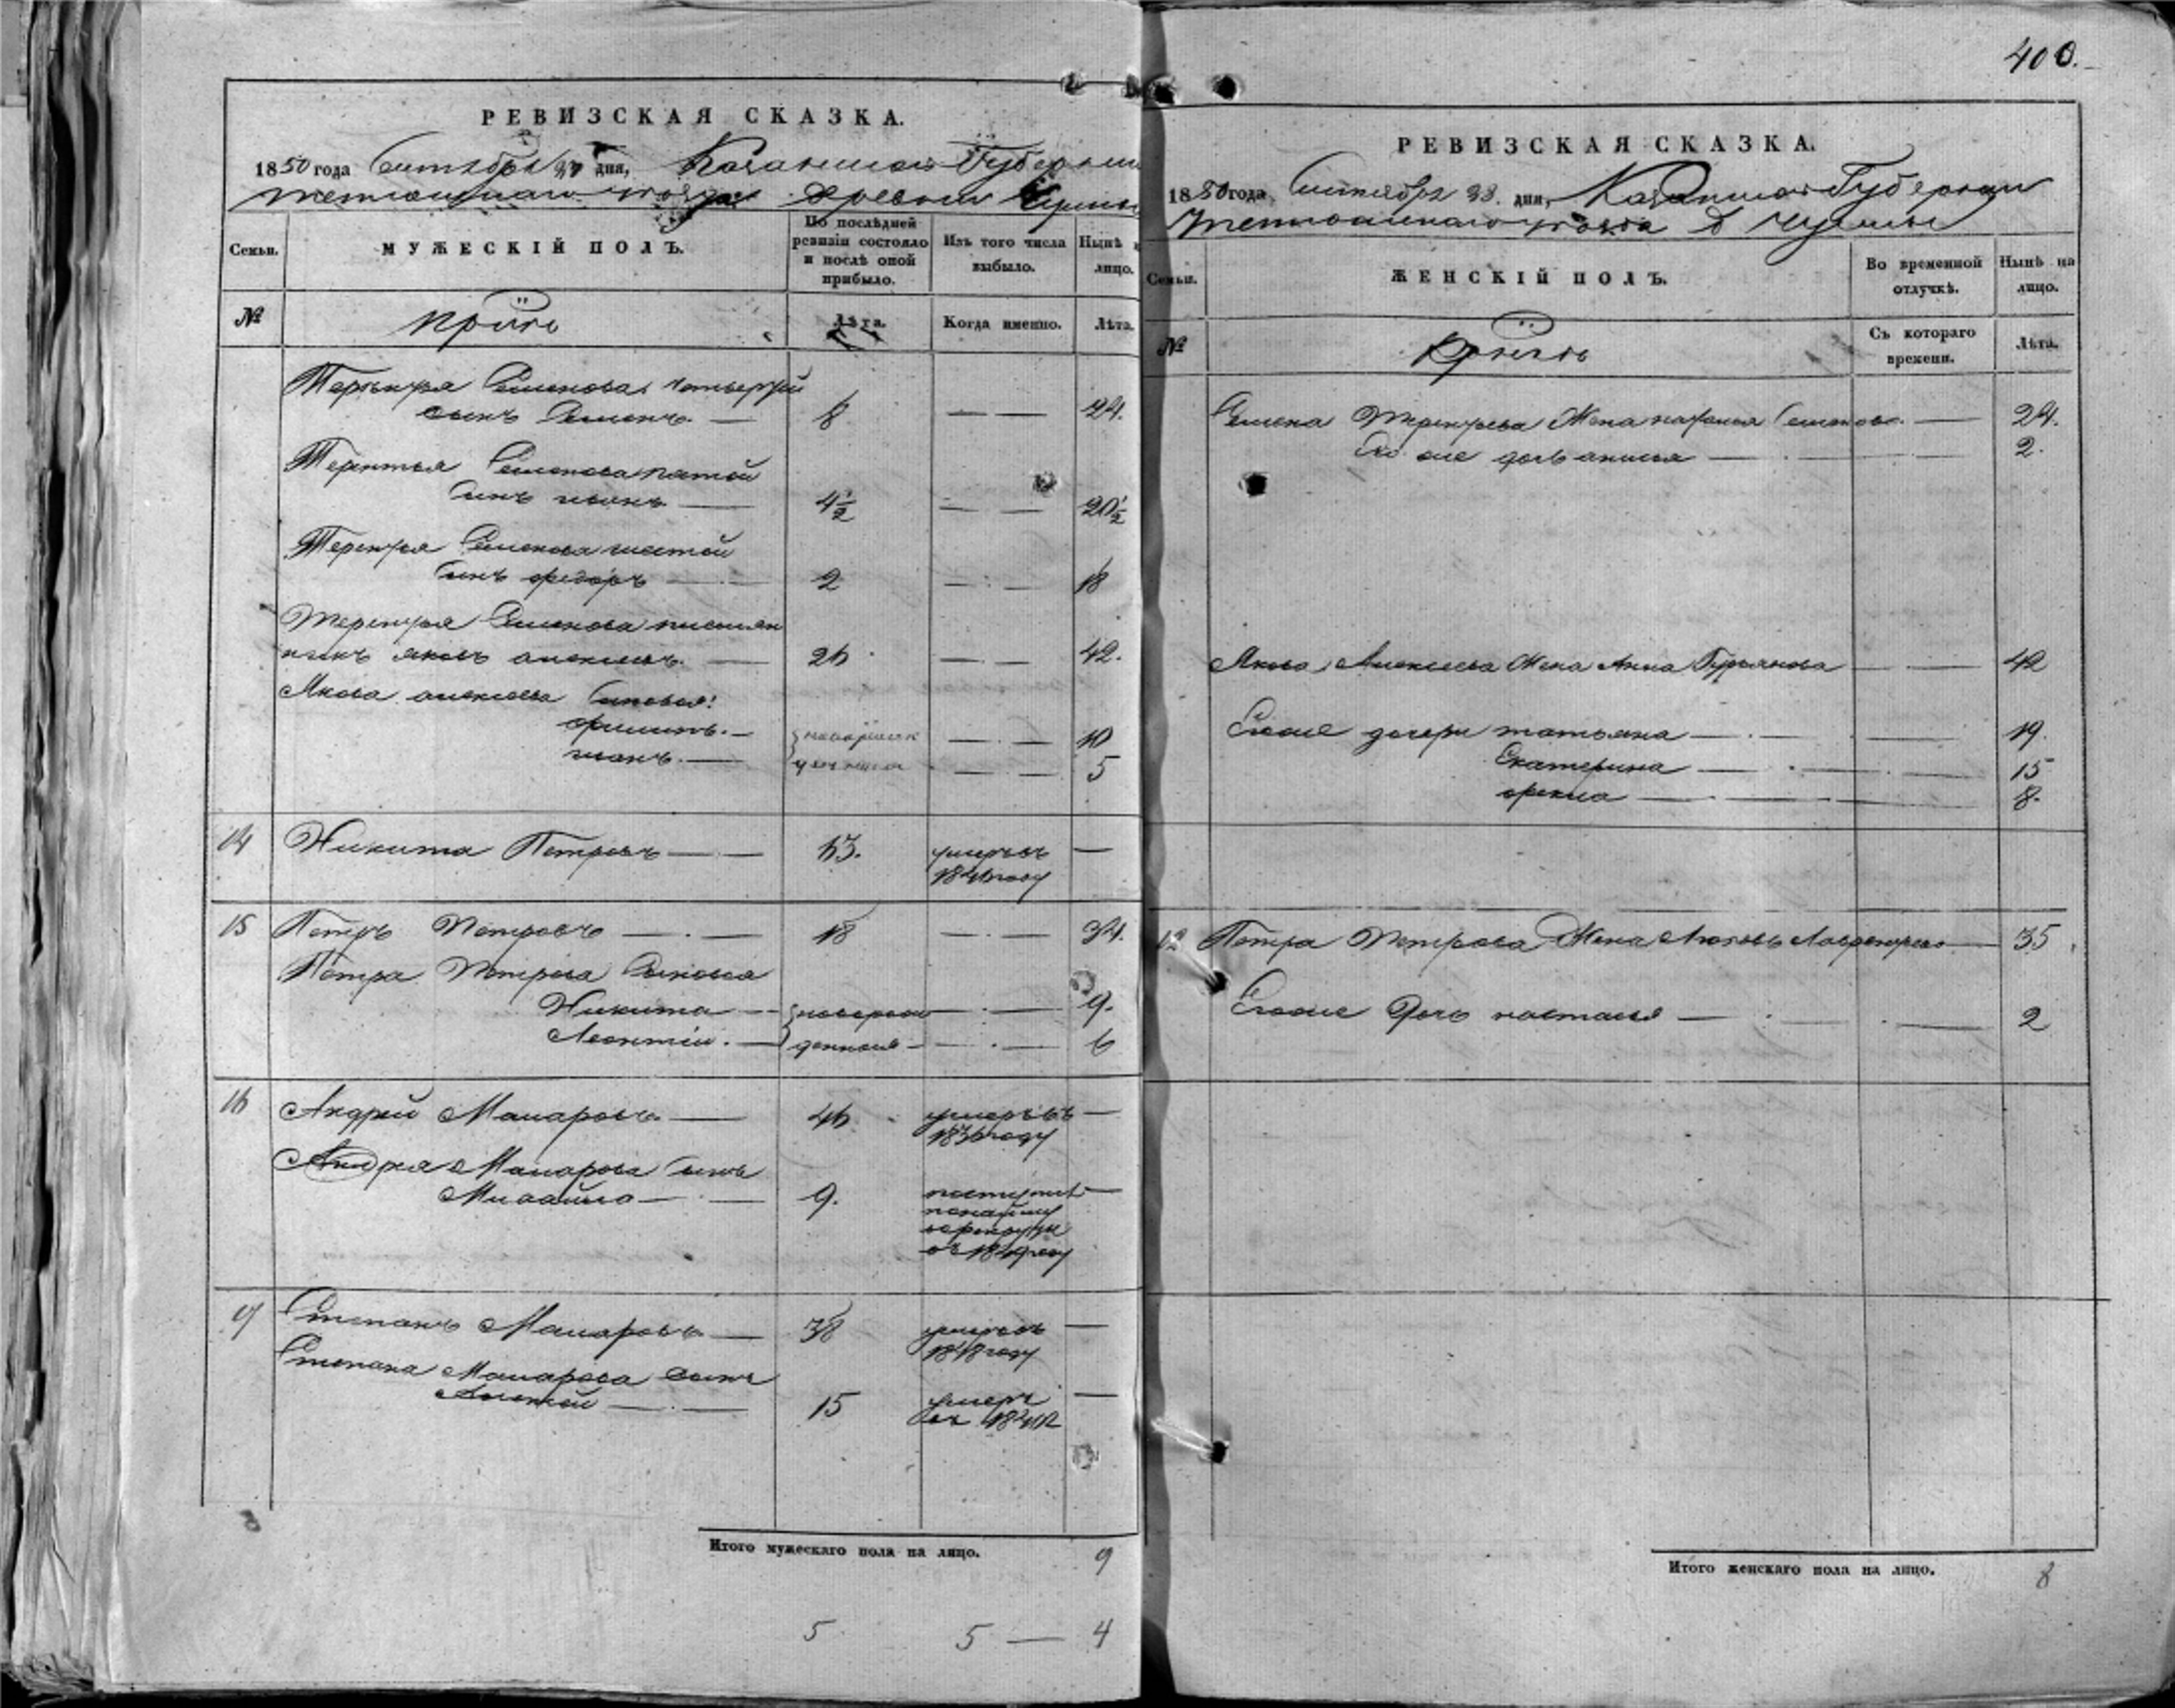 400.
РЕВИЗСКАЯ СКАЗКА.
1850 года Сентября дня, Казанской Губернии
Тетюшскаго уезда деревни
Семьи.
МУЖЕСКІЙ ПОЛЪ.
По послѣдней ревизіи состояло и послѣ оной прибыло.
Изъ того числа выбыло.
Нынѣ лицо.
№
Лѣта.
Когда именно.
Лѣта.
Терентья Семенова четвертой
сынъ Семенъ. — 8 — — 24.
Терентья Семенова пятой
сынъ иванъ — 4½ — — 20½
Терентья Семенова шестой
сынъ федоръ — 2 — — 18
Терентья Семенова племян
никъ яковъ алексеевъ. — 26 — — 42.
Якова алексеева Сыновья:
филипъ. — новорож — — 10
иванъ. — денныя — — 5
14 Никита Петровъ — — 63. умеръ въ —
году
15 Петръ Петровъ — — 18 — — 34.
Петра Петрова Сыновья
Никита — новорож — — 9.
Леонтій. — денныя — — 6
16 Андрей Макаровъ — 46 умеръ въ —
1836 году
Андрея Макарова сынъ
Михайло — — 9. поступилъ —
понайму
в рекруты
въ 1849 году
17 Степанъ Макаровъ — 38 умеръ въ —
1848 году
Степана Макарова сынъ
Алексей — — 15 умеръ —
въ
Итого мужескаго пола на лицо. 9
5 5 — 4
РЕВИЗСКАЯ СКАЗКА.
1850 года, Сентября 23. дня, Казанской Губернии
Тетюшскаго уезда Д
Семьи.
ЖЕНСКІЙ ПОЛЪ.
Во временной отлучкѣ.
Нынѣ на лицо.
№
Съ котораго времени.
Лѣта.
Семена Терентьева Жена Семенова. — 24.
Ево же дочь анисья — — 2.
Якова Алексеева Жена Анна Гурьянова — — 42
Еговые дочери татьяна — — 19.
Екатерина — — 15
фекла — — 8.
12 Петра Петрова Жена Любовь Лаврентьева — 35
Еговые Дочь настасья — — 2
Итого женскаго пола на лицо. 8